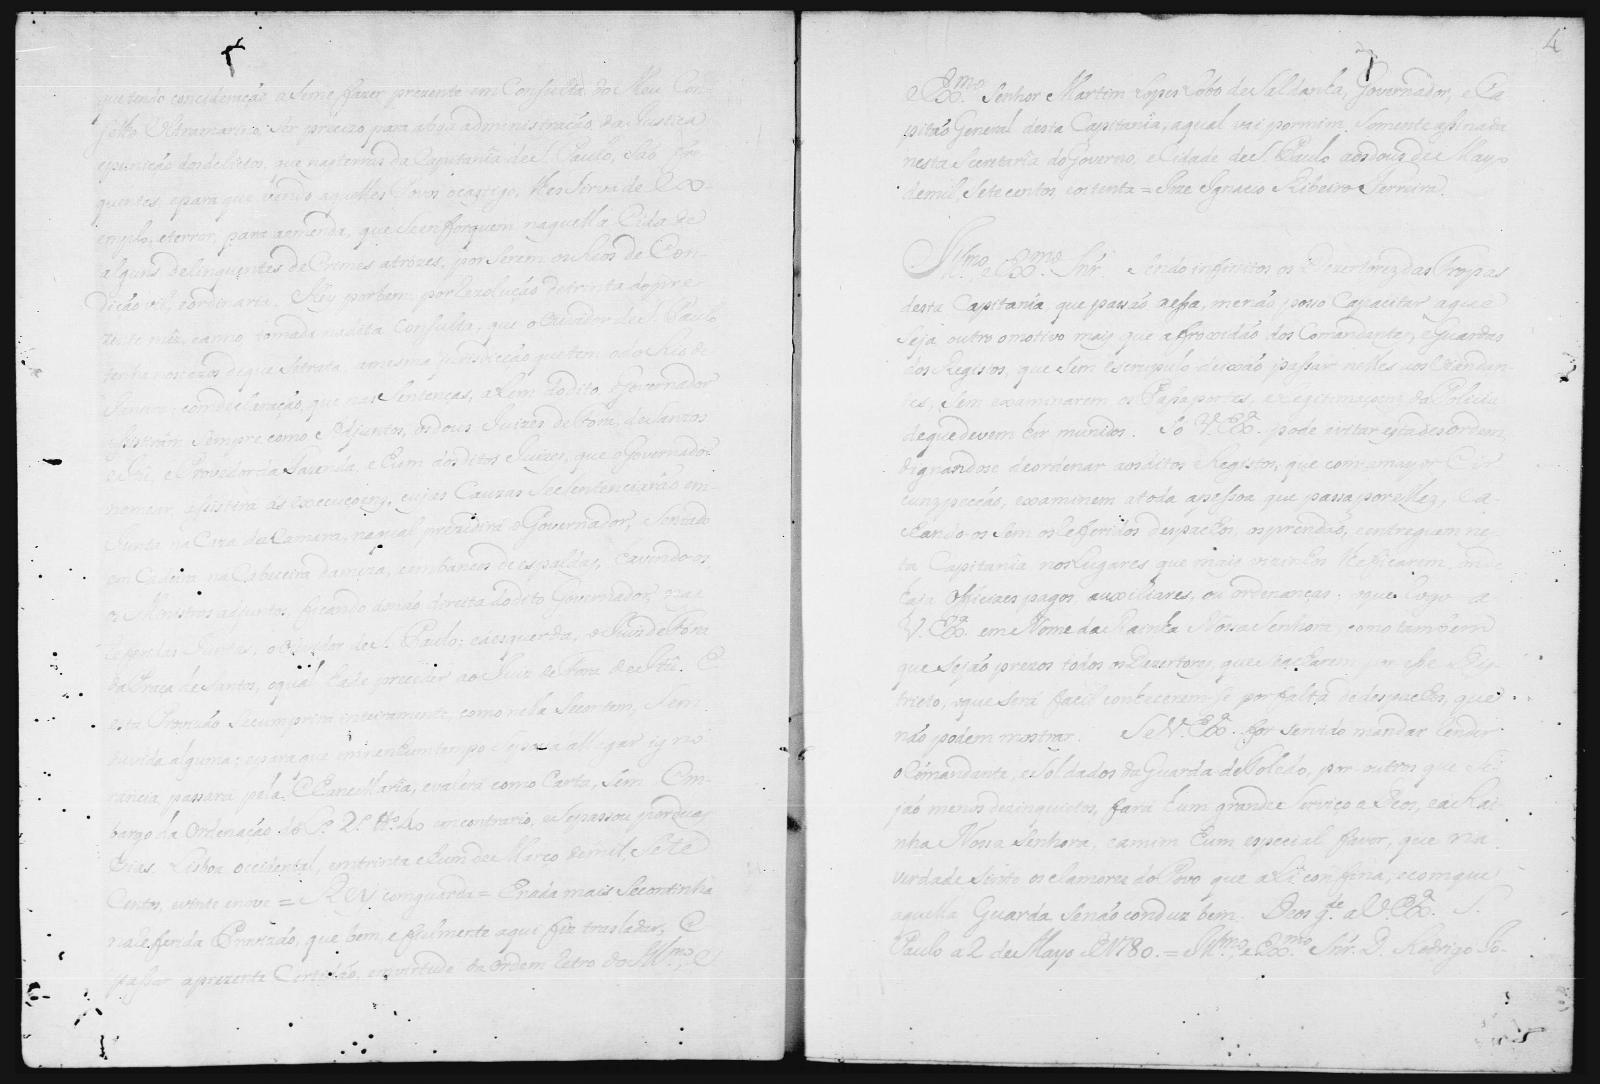 que tendo concideração a Seme ffazer prezente em Consulta do Meu Con-
selho Ultramarino, Ser precizo para aboa administração da Justiça
epunição dosdelictos, que nasterras da Capitania de S. Paulo, São fre-
quentes, epara que vendo aquelles Povos ocastigo, lhes Sirva de Ex-
emplo, eterror, para aemenda, que Seenfforquem naquella Cidade
alguns delinquentes de Crimes atrozes, por Serem os Reos de Con-
dição vil, eordinaria. Hey porbem por Rezolução detrinta dopre-
zente mêz, eanno tomada nadita Consulta, que o Ouvidor de S. Paulo
tenha noscazos deque Setrata, amesma jurisdicção quetem odo Rio de
Janeiro; comdeclaração, que nas Sentenças, alem dodito Governador
assistirám Sempre como Adjuntos, osdous Juizes de Fora, de Santos
e Itú, e Provedorda Fazenda, e hum dosditos Juizes, que oGovernador
nomear, assistirá ás execuçoens, cujas Cauzas SeSentenciarão em
Junta na Caza da Camara, naqual prezidirá o Governador, Sentado
em Cadeira na Cabeceira dameza, eembancos de espaldas, havendo-os
os Ministros adjuntos, ficando damão direita dodito Governador, nas
Referidas Juntas, o Ouvidor de S. Paulo; eáesquerda, o Juiz de Fóra
da Praça de Santos, oqual hade preceder ao Juiz de Fora de Itú. E
esta Provizão Secumprirá inteiramente, como nella Secontem, Sem
duvida alguma; epara que emnenhum tempo Sepossa allegar igno-
rancia, passará pela Chancellaria, evalerá como Carta, Sem Em-
bargo da Ordenação do L.º 2.º tt.º 40 em contrario, eSepassou porduas
Vias. Lisboa occidental, emtrinta ehum de Março demil, Sete
Centos, evinte enove = REY comguarda = Enada mais Secontinha
naRefferida Provizão, que bem, efielmente aqui fiz trasladar, E
passar aprezente Certidão, emvirtude da Ordem Retro do Ill.mo, E
4
e Ex.mo Senhor Martim Lopes Lobo de Saldanha, Governador, e Ca-
pitão General desta Capitania, aqual vai pormim Somente assinada
nesta Secretaria doGoverno, eCidade de S. Paulo aosdous de Mayo
demil, Sete centos, eoitenta = Joze Ignacio Ribeiro Ferreira.
Ill.mo e Ex.mo Snr. Sendo infinitos os Dezertores das Tropas
desta Capitania que passão aessa, menão posso Capacitar aque
Seja outro omotivo mais que a frouxidão dos Comandantes, eGuardas
dos Registos, que Sem escrupulo deixão passar nelles aos Viandan-
tes, Sem examinarem os Passaportes, eLegitimaçoens da Policia
dequedevem hir munidos. Só V. Ex.a pode evitar estadesordem,
dignandose deordenar aosditos Registos, que com amayor Cir-
cunspecção, examinem atoda apessoa que passa por elles, eA-
chando-os Sem osRefferidos despachos, osprendão, eentreguem nes-
ta Capitania noslugares que mais vizinhos lheficarem, onde
haja Officiaes pagos, auxiliares, ou ordenanças; oque Rogo a
V. Ex.a em Nome da Rainha Nossa Senhora, como tambem
que Sejão prezos todos os Dezertores, que Seacharem por esse Dis-
tricto, oque Será facil conhecerem-se por falta dedespachos, que
não podem mostrar. Se V. Ex.a for servido mandar Render
oComandante, eSoldados da Guarda deToledo, por outros que Se-
jaó menos dezinquietos, fará hum grande Serviço a Deos, eáRai-
nha Nossa Senhora, eamim hum especial favor, que na
verdade Sinto osclamores do Povo que alí confina, ecomque
aquella Guarda Senão conduz bem. Deos g.de a V. Ex.a S.
Paulo a 2 de Mayo de 1780. = Ill.mo e Ex.mo Snr. D. Rodrigo Jo-